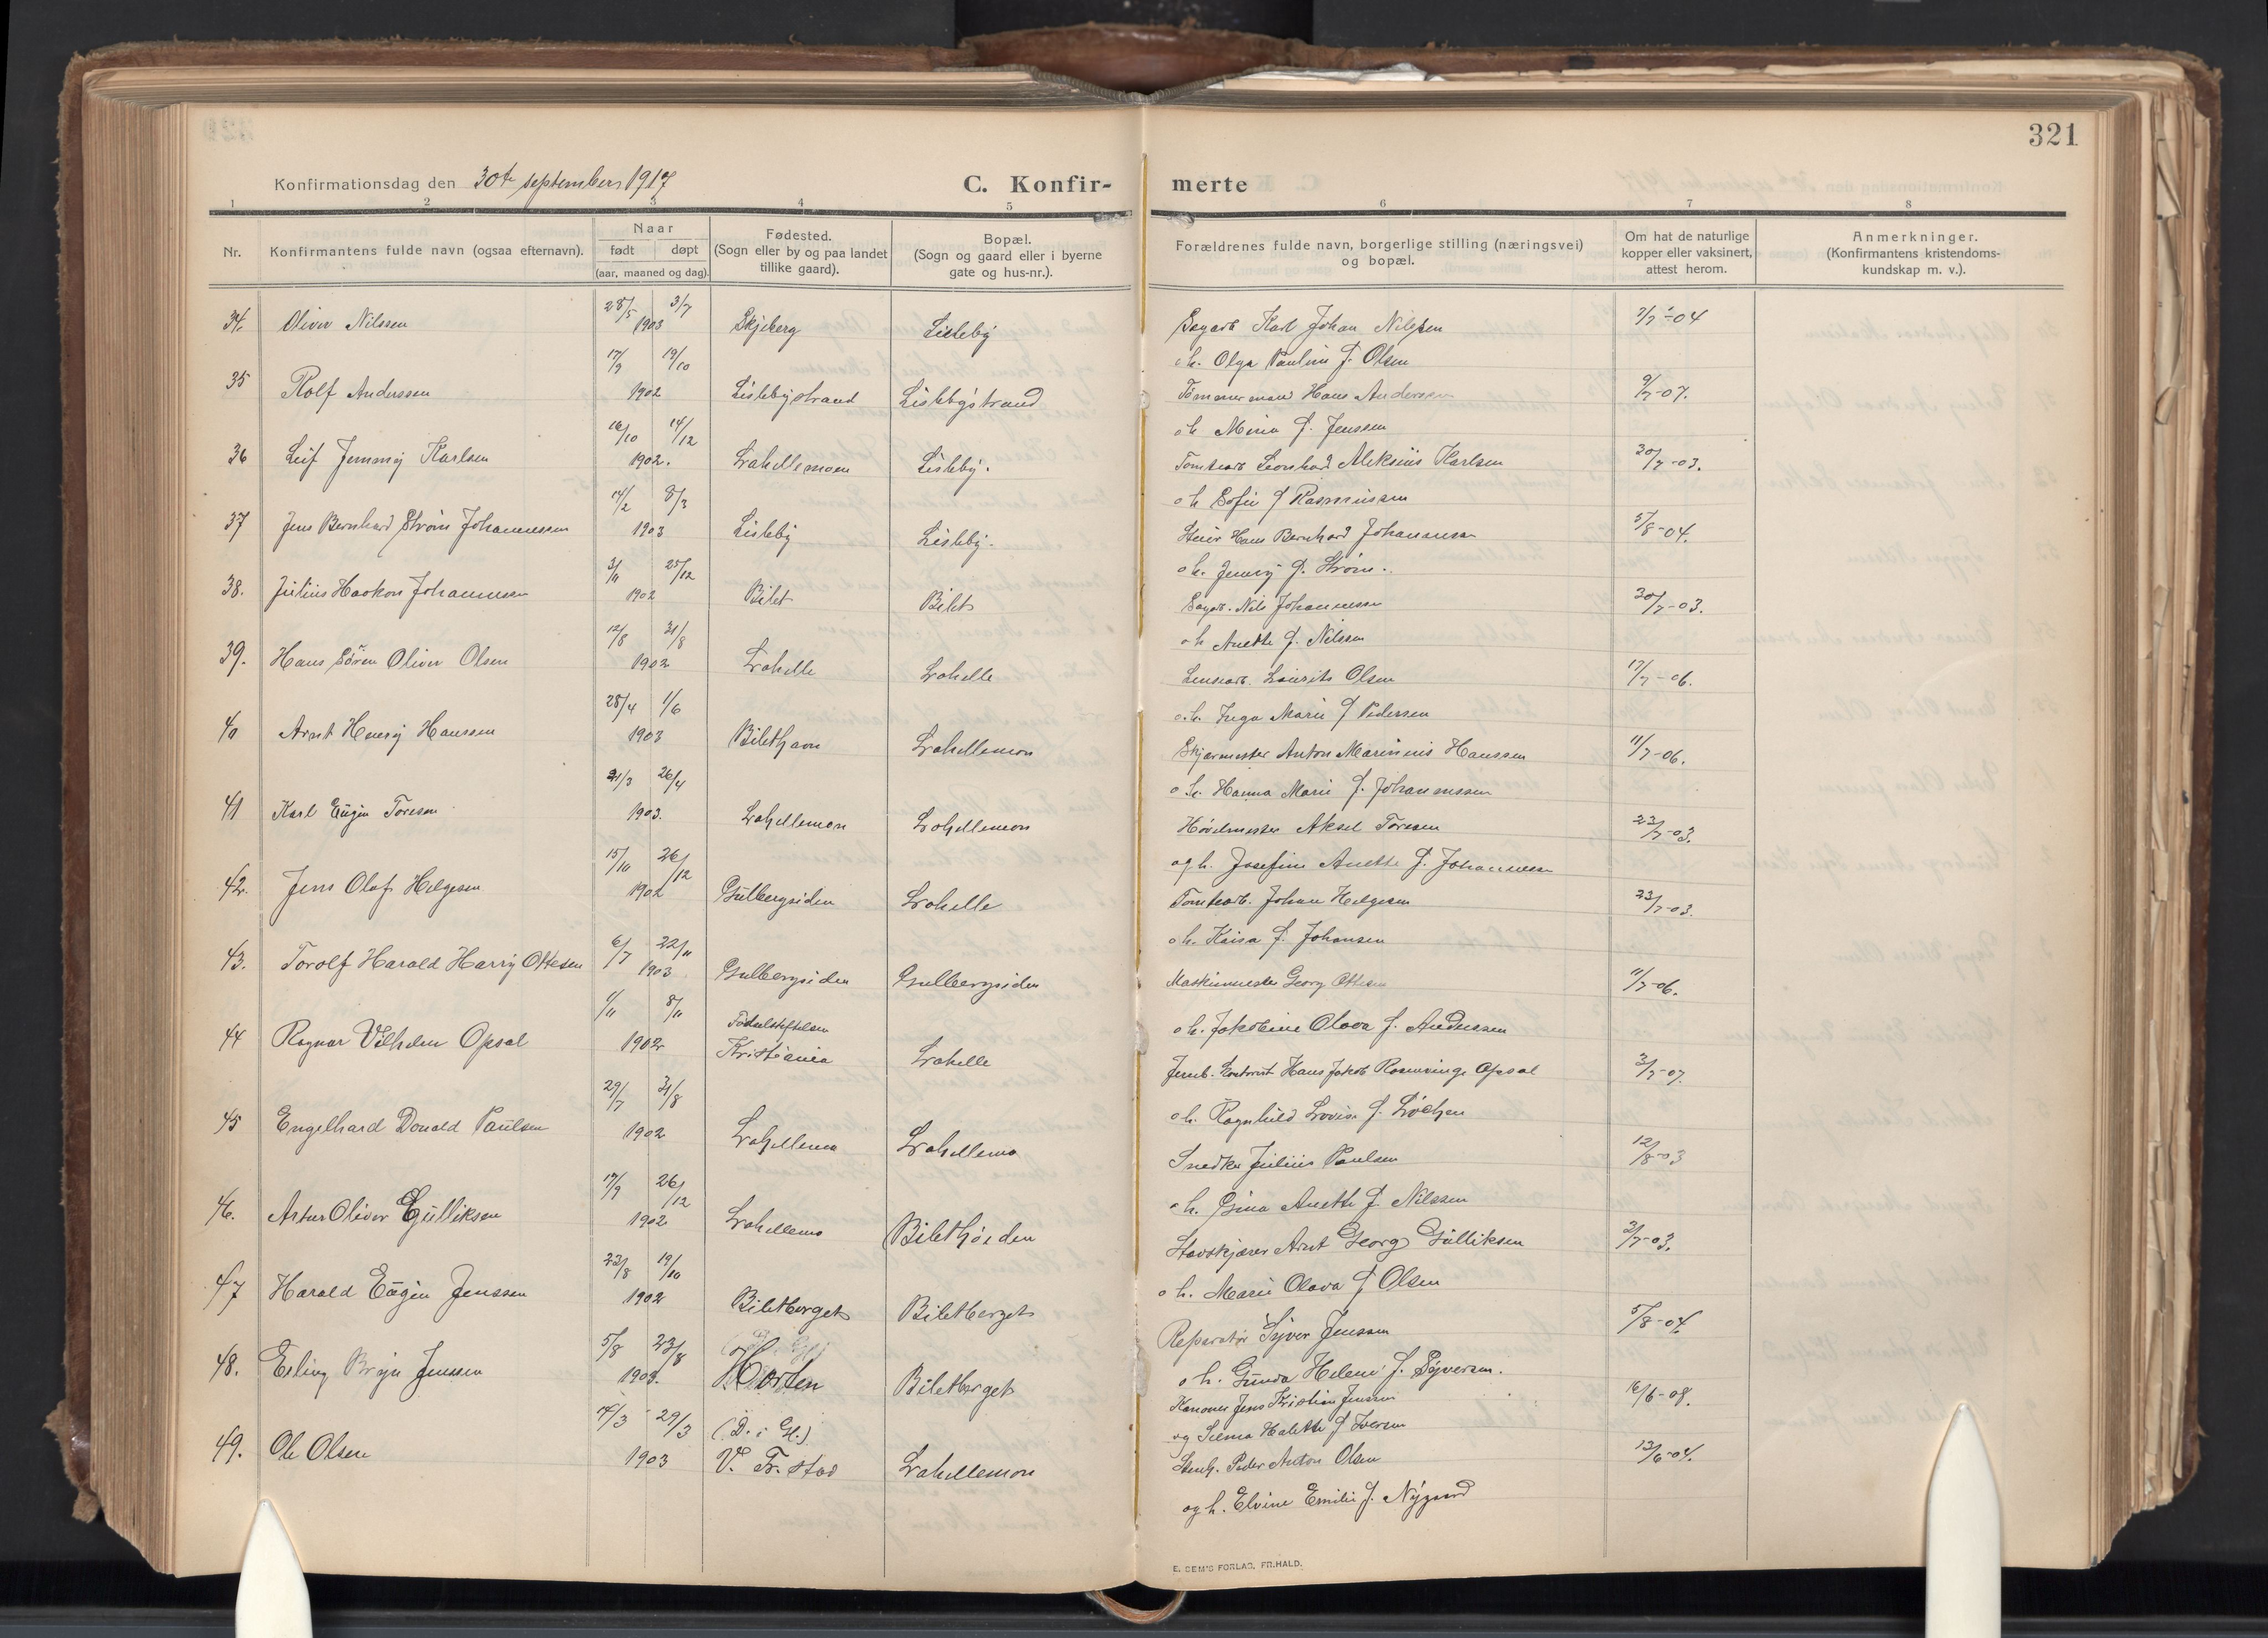 321
Konfirmationsdag den 30te september 1917
C. Konfir-
merte
1 2 3 4 5 6 7 8
Nr.
Konfirmantens fulde navn (ogsaa efternavn).
Naar
født døpt
(aar, maaned og dag).
Fødested.
(Sogn eller by og paa landet
tillike gaard).
Bopæl.
(Sogn og gaard eller i byerne
gate og hus-nr.).
Forældrenes fulde navn, borgerlige stilling (næringsvei)
og bopæl.
Om hat de naturlige
kopper eller vaksinert,
attest herom.
Anmerkninger.
(Konfirmantens kristendoms-
kundskap m. v.).
28/5 3/7
34. Oliver Nilssen 1903 Skjeberg Lisleby Sagarb Karl Johan Nilssen 7/7-04
17/9 19/10 o h. Olga Pauline f. Olsen
35 Rolf Anderssen 1902 Lislebystrand Lislebystrand Tømmermand Hans Anderssen 9/7-07.
16/10 14/12 o h Mina f. Jenssen
36 Leif Jemmy Karlsen 1902. Lahellemoen Lisleby. Tomtearb Leonhard Aleksius Karlsen 20/7-03.
14/2 8/3 o h Sofie f Rasmussen
37 Jens Bernhard Strøm Johannessen 1903 Lisleby Lisleby. Hans Bernhard Johannessen 5/8-04.
3/11 25/12 o h. Jenny f. Strøm.
38. Julius Haakon Johannessen 1902 Bilet Bilet Sagarb. Nils Johannessen 30/7-03.
12/8 31/8 o h Anette f. Nilssen
39. Hans Søren Oliver Olsen 1902 Lahelle Lahelle Lensearb. Laurits Olsen 17/7-06.
28/4 1/6 o. h. Inga Marie f Pedersen
40 Arnt Henry Hanssen 1903 Bilethavn Lahellemoen Skjærmester Anton Marinius Hanssen 11/7-06.
21/3 26/4 o h. Hanna Marie f. Johannessen
41 Karl Eugen Toresen 1903. Lahellemoen Lahellemoen Høvelmester Aksel Toresen 23/7-03.
15/10 26/12 og h. Josefine Anette f. Johannessen
42. Jens Olaf Helgesen 1902 Gulbergsiden Lahelle Tomtearb. Johan Helgesen 23/7-03.
6/7 22/11 o h. Kaisa f. Johansen
43. Torolf Harald Harry Ottesen 1903 Gulbergsiden Gulbergsiden Maskinmester Georg Ottesen 11/7-06.
1/11 8/11 Fødselsstiftelsen o h. Jakobine Olava f. Anderssen
44 Ragnar Vilhelm Opsal 1902 Kristiania Lahelle Jernb. Hans Jakob Rosenvinge Opsal 3/7-07.
29/7 31/8 o h. Ragnhild Lovise f. Løchen
45 Engelhard Donald Paulsen 1902 Lahellemo Lahellemo Snedker Julius Paulsen 12/8-03
17/9 26/12 o h. Gina Anette f. Nilssen
46. Artur Oliver Gulliksen 1902 Lahellemo Bilethøiden Stavskjærer Arnt Georg Gulliksen 3/7-03.
23/8 19/10 o h. Marie Olava f Olsen
47 Harald Eugen Jenssen 1902 Biletberget Biletberget Reparatør Syver Jenssen 5/8-04.
5/8 23/8 o h. Gunda Helene f. Syversen.
48. Erling Bryn Jenssen 1903. Horten Biletberget Kanoner Jens Kristian Jenssen 16/6-08.
14/3 29/3 (D. i Gl.) og Selma Halette f Iversen
49. Ole Olsen 1903 V. Fr. stad Lahellemoen Stenh. Peder Anton Olsen 13/6-04.
og h. Elvine Emilie f. Nygaard
E. SEM'S FORLAG, FR.HALD.